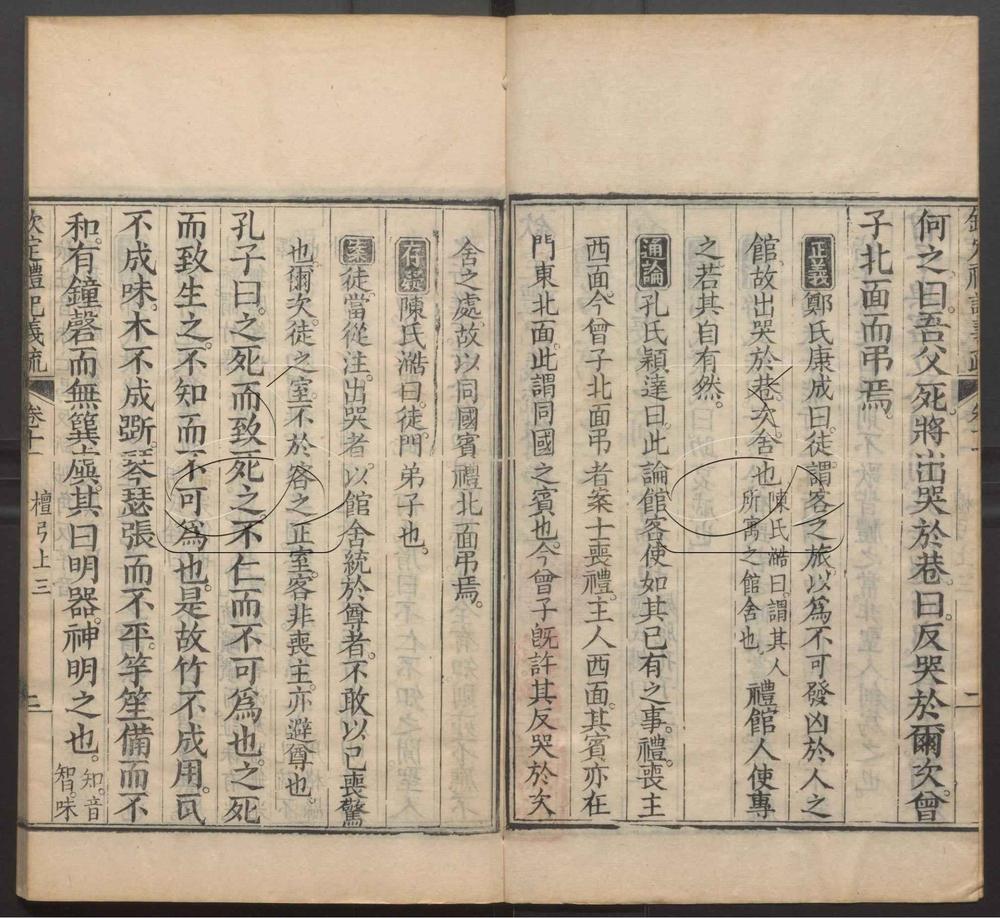 何之。曰。吾父死。將出哭於巷。曰。反哭於爾次。曾
子北面而弔焉。
正義 鄭氏康成曰。徒。謂客之旅。以為不可發凶於人之
館。故出哭於巷。次。舍也。陳氏澔曰。謂其人所寓之館舍也。禮。館人使專
之。若其自有然。
通論 孔氏穎達曰。此論館客使如其已有之事。禮。喪主
西面。今曾子北面弔者。案士喪禮。主人西面。其賓亦在
門東北面。此謂同國之賓也。今曾子既許其反哭於次
舍之處。故以同國賓禮北面弔焉。
存疑 陳氏澔曰。徒。門弟子也。
案 徒。當從注。出哭者。以館舍統於尊者。不敢以已喪驚
也。爾次。徒之室。不於客之正室。客非喪主。亦避尊也。
孔子曰。之死而致死之。不仁而不可為也。之死
而致生之。不知而不可為也。是故竹不成用。瓦
不成味。木不成斲。琴瑟張而不平。竽笙備而不
和。有鐘磬而無簨虡。其曰明器。神明之也。知。音智。味
欽定禮記義疏 卷十一 檀弓上三 二